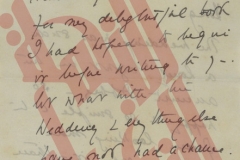 for my delightful book
I had hoped to begin
or before writing to y
but what with the
Wedding & everything else
have not had a chance